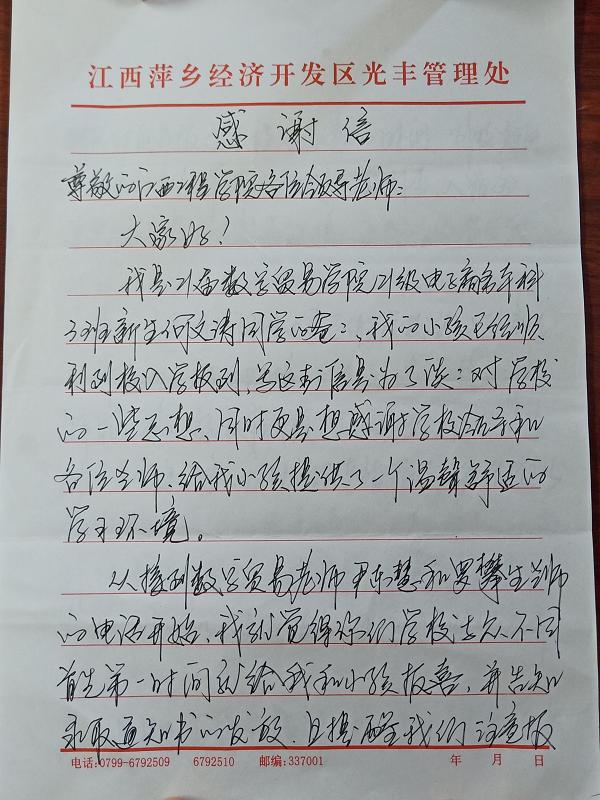 江西萍乡经济开发区光丰管理处
感谢信
尊敬的江西工程学院各位领导老师:
大家好!
我是21届数字贸易学院21级电子商务本科
3班新生何文涛同学的爸爸、我的小孩已经顺
利到校入学报到,写这封信是为了谈谈对学校
的一些思想、同时更是想感谢学校领导和
各位老师、给我小孩提供了一个温馨舒适的
学习环境。
从接到数字贸易老师尹东慧和罗攀生老师
的电话开始、我就觉得你们学校与众不同
首先第一时间就给我和小孩报喜,并告知
录取通知书的发放、且提醒我们注意报
电话:0799-6792509 6792510 邮编:337001 年 月 日